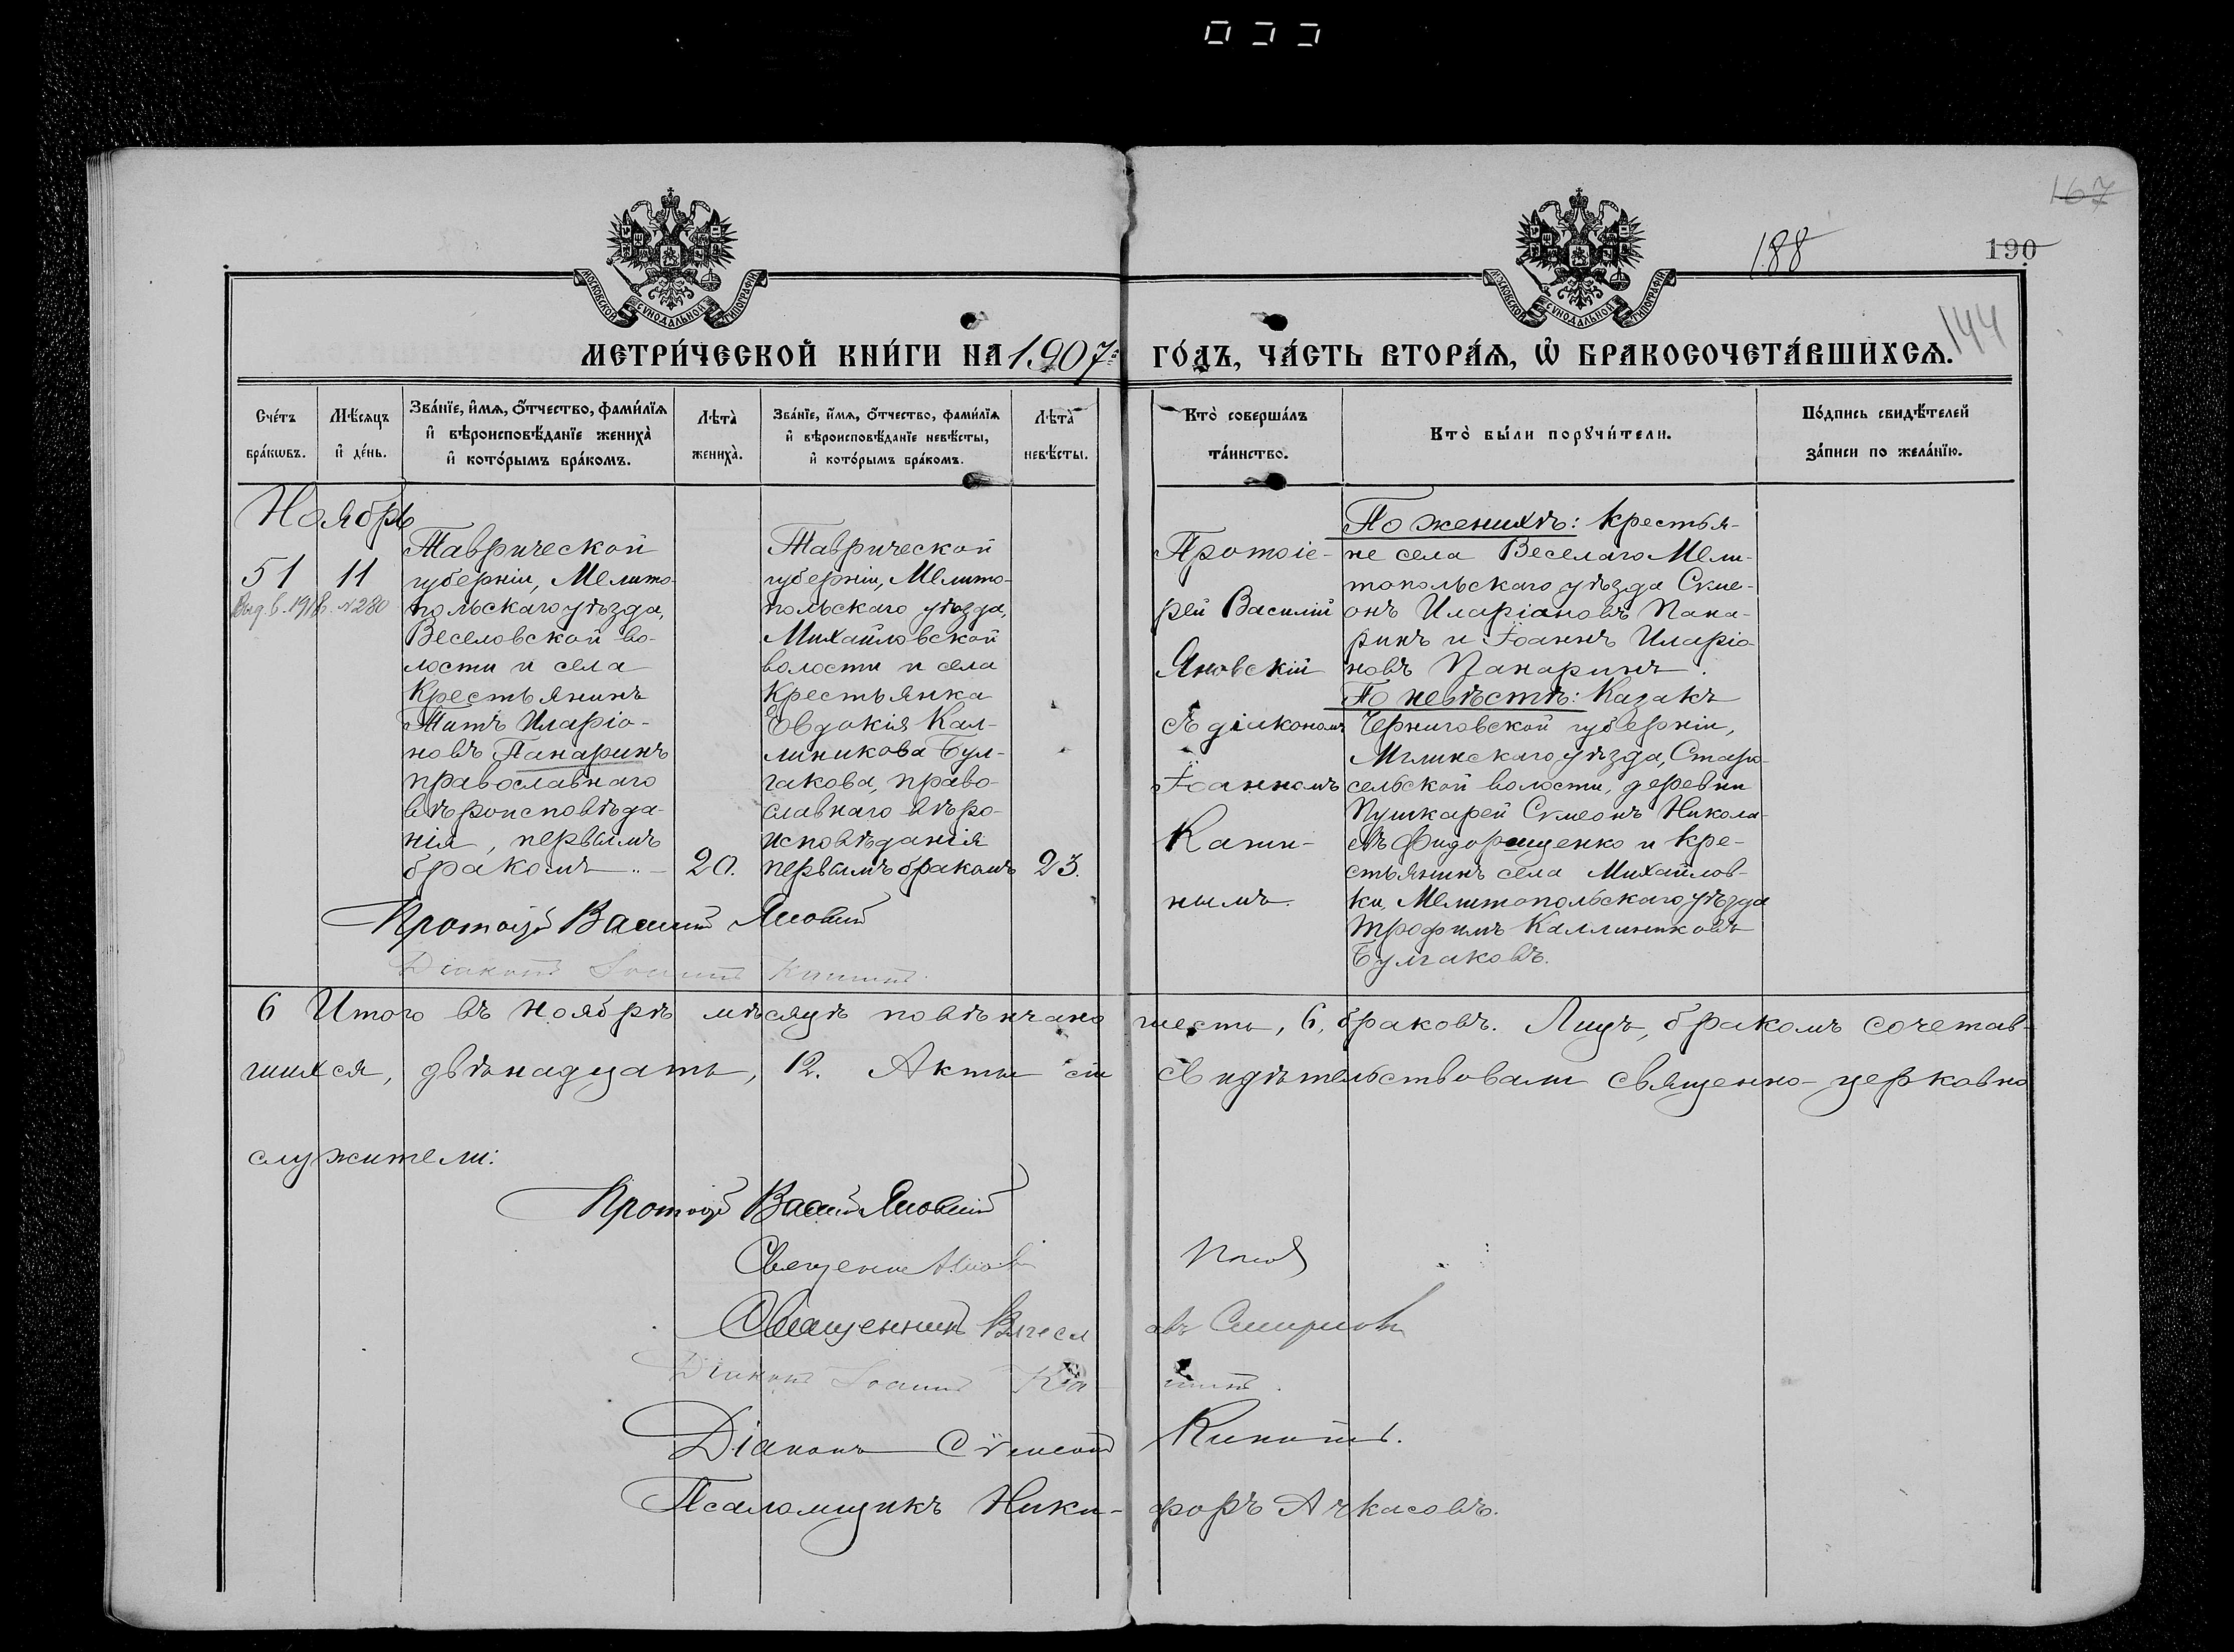 167
188
190
144
МОСКОВСКОЙ СѴНОДАЛЬНОЙ ТИПОГРАФІИ
МОСКОВСКОЙ СѴНОДАЛЬНОЙ ТИПОГРАФІИ
МЕТРИ́ЧЕСКОЙ КНИ́ГИ НА 1907 ГО́ДЪ, ЧА́СТЬ ВТОРА́Ѧ, Ѡ҆ БРАКОСОЧЕТА́ВШИХСѦ.
Сче́тъ
бра́кѡвъ.
Мѣ́сѧцъ
и҆ де́нь.
Зва́нїе, и҆́мѧ, ѻ҆́тчество, фами́лїѧ
и҆ вѣроисповѣ́данїе жениха̀
и҆ кото́рымъ бра́комъ.
Лѣта̀
жениха̀.
Зва́нїе, и҆́мѧ, ѻ҆́тчество, фами́лїѧ
и҆ вѣроисповѣ́данїе невѣ́сты,
и҆ кото́рымъ бра́комъ.
Лѣта̀
невѣ́сты.
Кто̀ соверша́лъ
та́инство.
Кто̀ бы́ли порꙋчи́тели.
По́дпись свидѣ́телей
за́писи по жела́нїю.
Ноябрь
51
11
Выд. в. 1918. №280
Таврической
губерніи, Мелито-
польскаго уѣзда,
Веселовской во-
лости и села
Крестьянинъ
Титъ Иларіо-
новъ Панаринъ
православнаго
вѣроисповѣда-
нія, первымъ
бракомъ
20.
Таврической
губерніи, Мелито-
польскаго уѣзда,
Михайловской
волости и села
Крестьянка
Евдокія Кал-
линикова Бул-
гакова, право-
славнаго вѣро-
исповѣданія
первымъ бракомъ
23.
Протоіе-
рей Василій
Яновскій
съ діакономъ
Іоанномъ
Капи-
нымъ.
По женихѣ: крестья-
не села Веселаго Мели-
топольскаго уѣзда Симе-
онъ Иларіановъ Пана-
ринъ и Іоаннъ Иларіо-
новъ Панаринъ.
По невѣстѣ: Казакъ
Черниговской губерніи,
Мглинскаго уѣзда, Старо-
сельской волости, деревни
Пушкарей Симеонъ Никола-
евъ Фидорищенко и кре-
стьянинъ села Михайлов-
ки, Мелитопольскаго уѣзда
Трофимъ Каллиниковъ
Булгаковъ.
Протоіерей Василій Яновскій
Діаконъ Іоаннъ Капинъ
6 Итого въ Ноябрѣ мѣсяцѣ повѣнчано шесть, 6, браковъ. Лицъ, бракомъ сочетав-
шихся, двѣнадцать, 12. Акты сіи свидѣтельствовали священно-церковно
служители:
Протоіерей Василій Яновскій
Священникъ Поповъ
Священникъ Вячеславъ Смирновъ
Діаконъ Іоаннъ Капинъ.
Діаконъ Сѵмеонъ
Псаломщикъ Никифоръ Ачкасовъ.